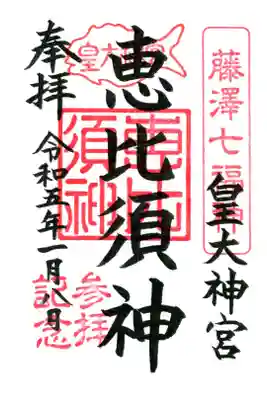 藤澤七福神
皇大神宮
皇大神宮
恵比須神
恵比須神
奉拝
令和五年一月八日
参拝
記念